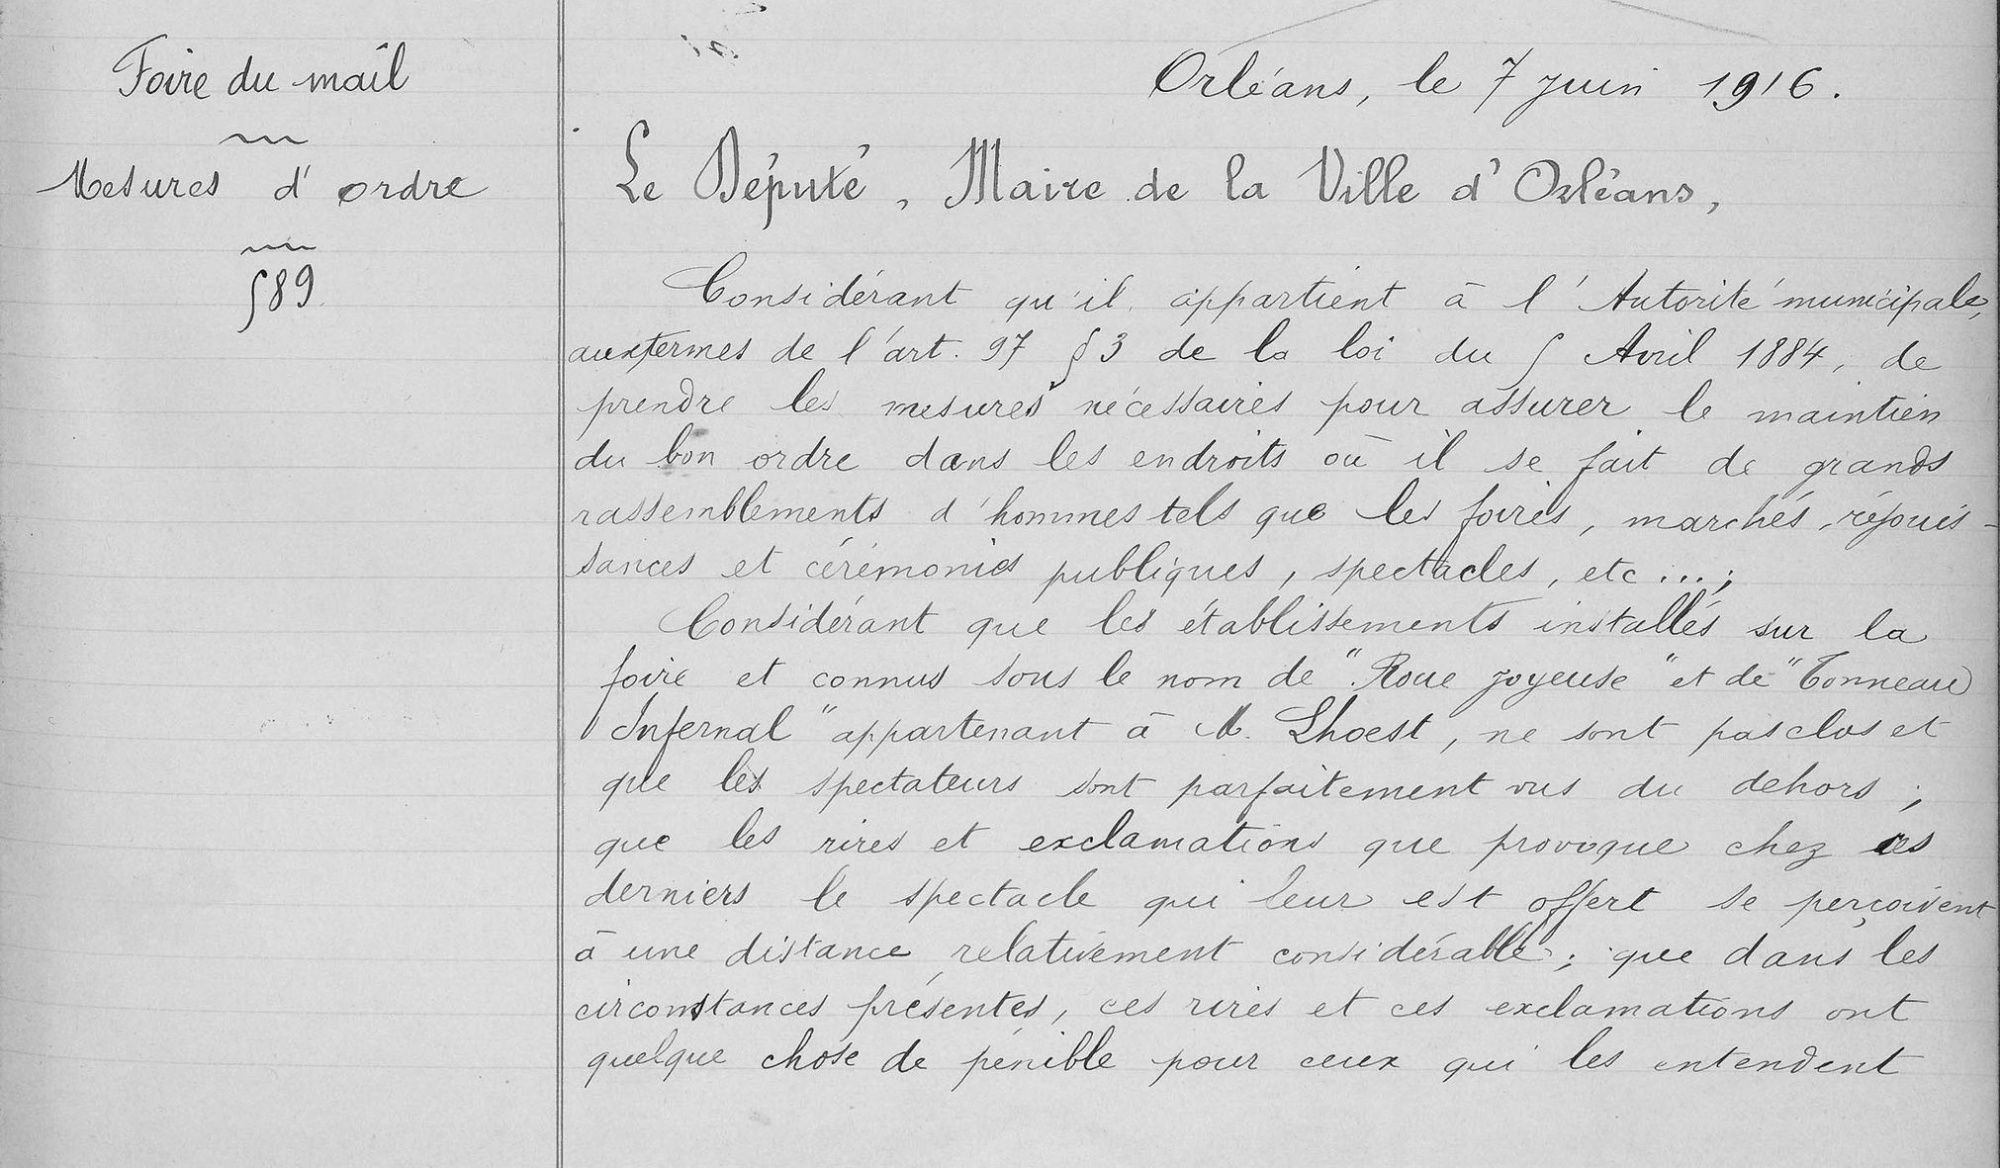 Foire du mail
Mesures d'ordre
589
Orléans, le 7 juin 1916.
Le Député, Maire de la Ville d'Orléans,
Considérant qu'il appartient à l'Autorité municipale,
aux termes de l'art. 97 § 3 de la loi du 5 Avril 1884, de
prendre les mesures nécessaires pour assurer le maintien
du bon ordre dans les endroits où il se fait de grands
rassemblements d'hommes tels que les foires, marchés, réjouis-
sances et cérémonies publiques, spectacles, etc...;
Considérant que les établissements installés sur la
foire et connus sous le nom de "Roue joyeuse" et de "Tonneau
Infernal" appartenant à M. Lhoest, ne sont pas clos et
que les spectateurs sont parfaitement vus du dehors;
que les rires et exclamations que provoque chez ces
derniers le spectacle qui leur est offert se perçoivent
à une distance relativement considérable; que dans les
circonstances présentes, ces rires et ces exclamations ont
quelque chose de pénible pour ceux qui les entendent